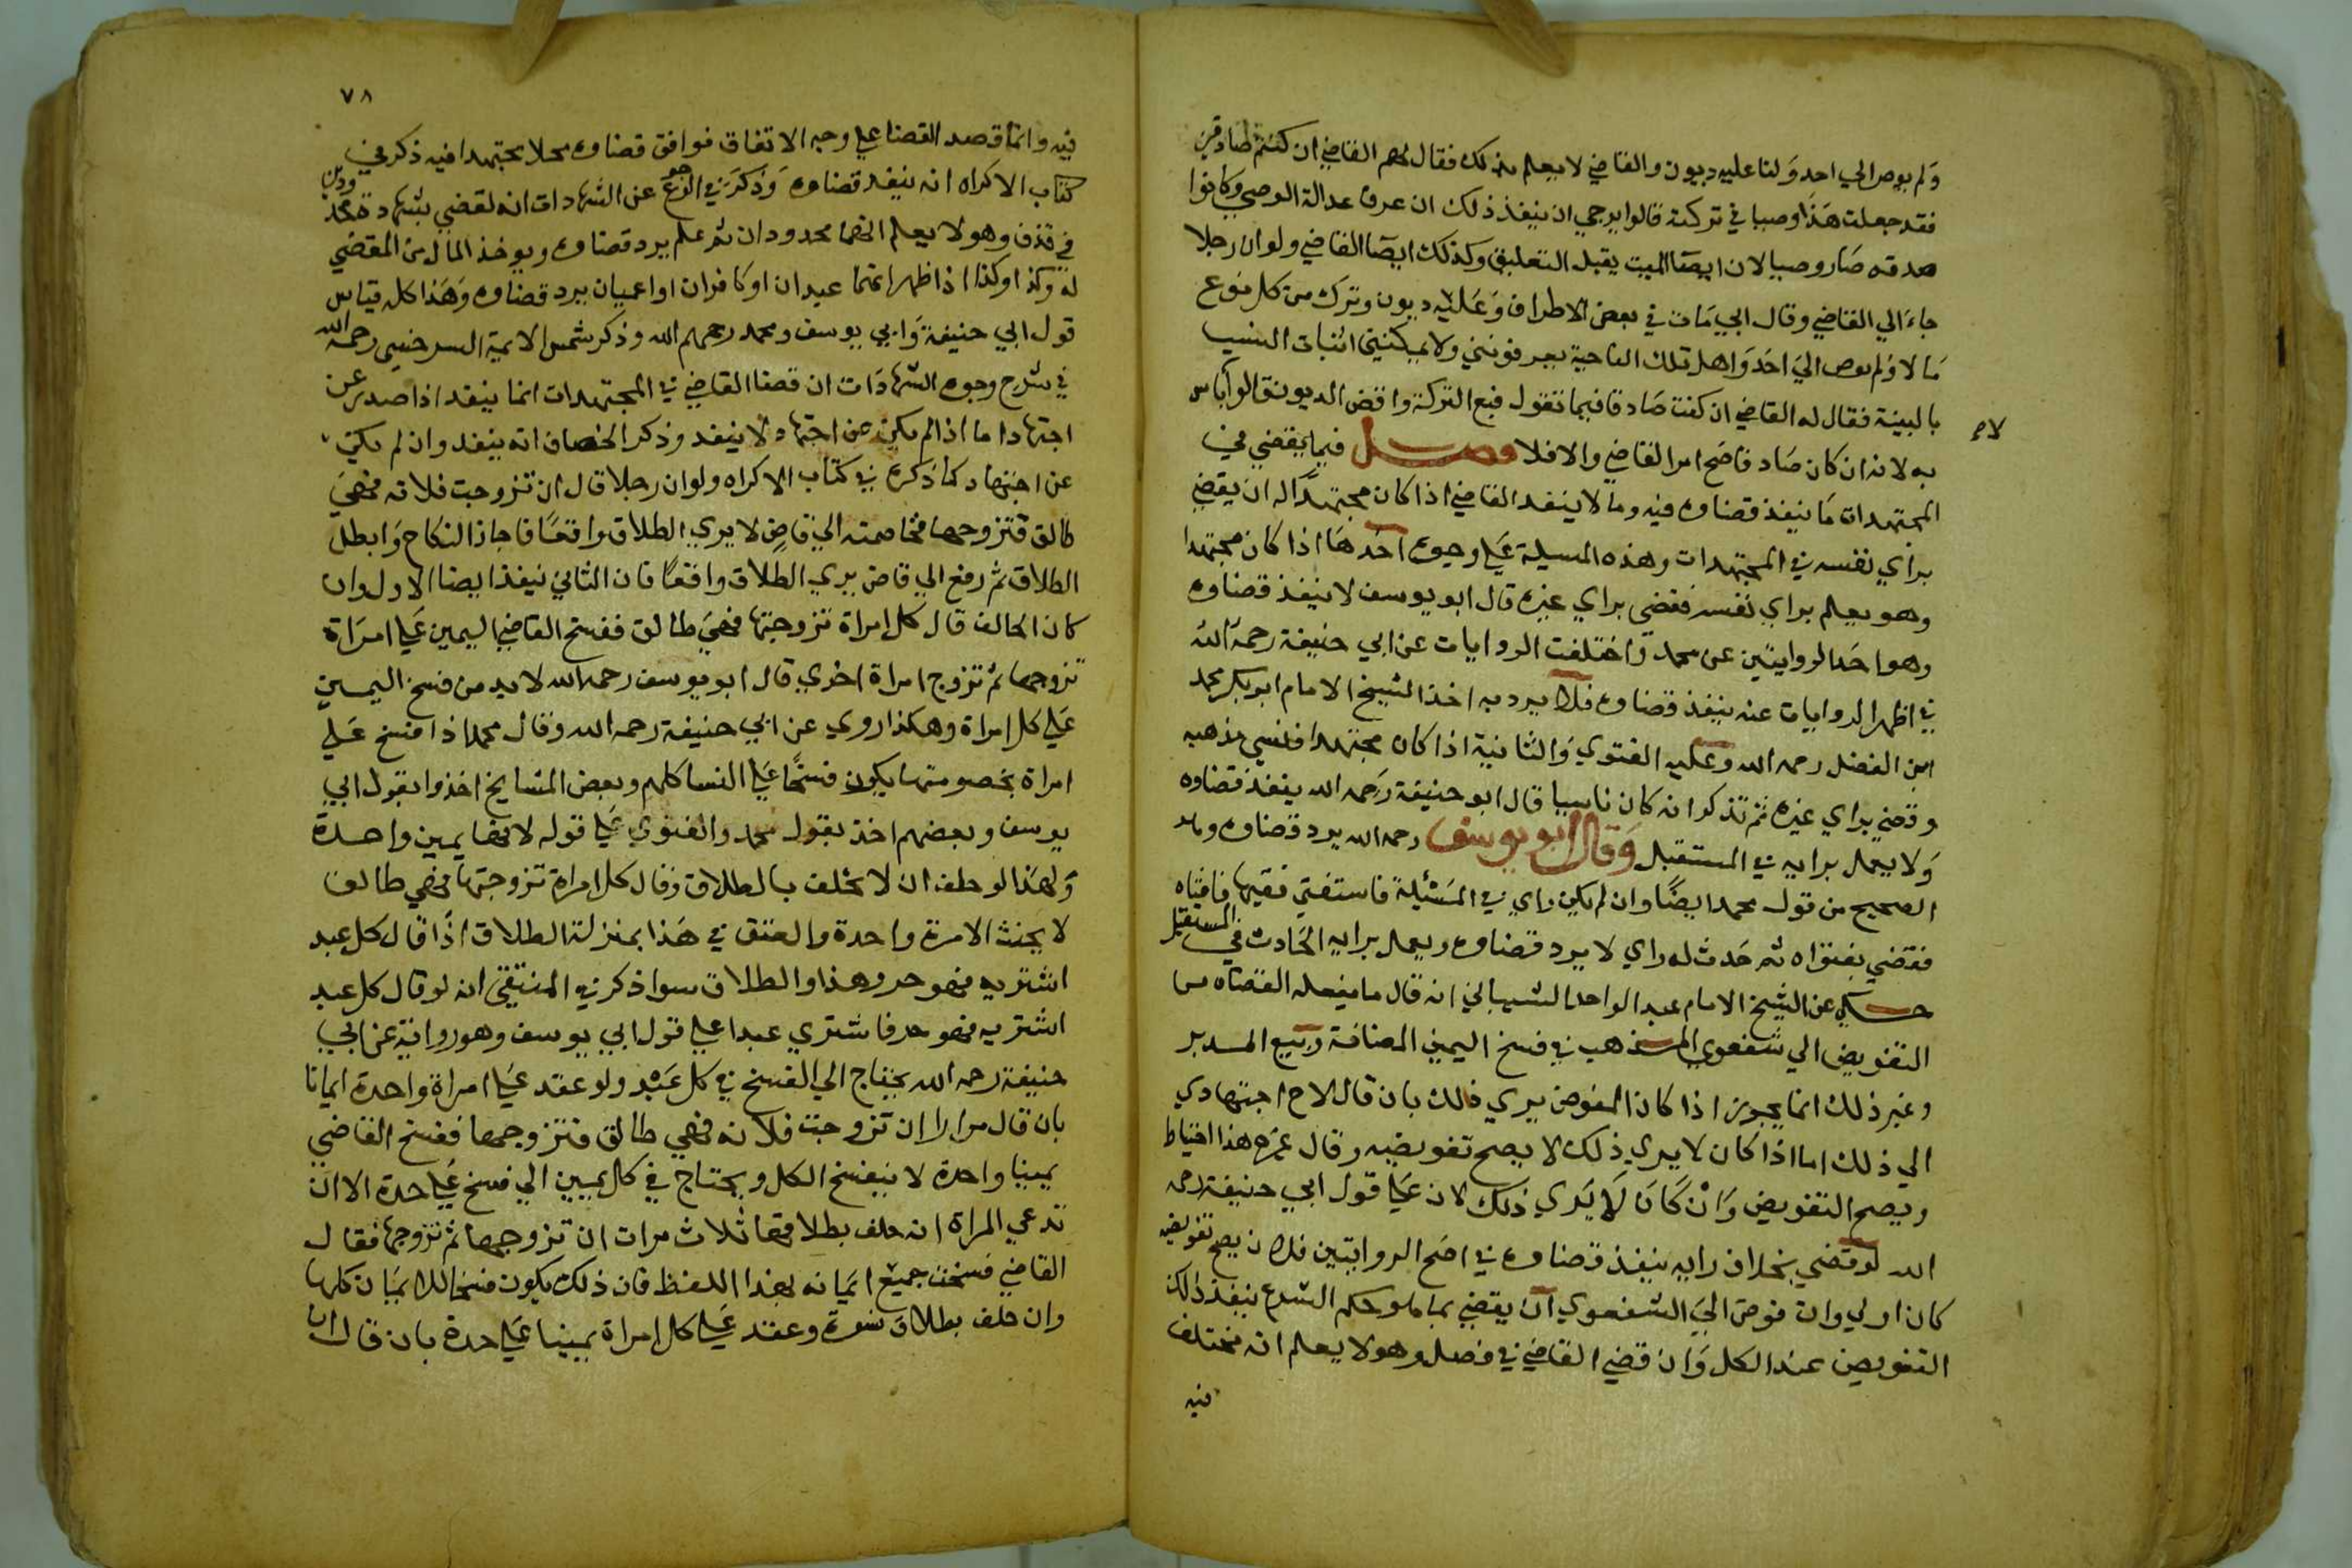 ولم يوص الي احد ولنا عليه ديون والقاضي لا يعلم بذلك فقال لهم القاضي ان كنتم صادقين
فقد جعلت هذا وصيا في تركته قالوا يرجي ان ينفذ ذلك ان عرف عدالة الوصي وكانوا
صدقه صار وصيا لان ايصا الميت يقبل التعليق وكذلك ايصا القاضي ولو ان رجلا
جاء الي القاضي وقال ابي مات في بعض الاطراف وعليه ديون وترك من كل نوع
مالا ولم يوص الي احد واهل تلك الناحية يعرفونني ولا يمكنني اثبات النسب
بالبينة فقال له القاضي ان كنت صادقا فيما تقول فبع التركة واقض الديون قالوا لا باس
به لانه ان كان صادقا صح امر القاضي والا فلا فصل فيما يقضي في
المجتهدات ما ينفذ قضاوه فيه وما لا ينفد القاضي اذا كان مجتهدا له ان يقضي
براي نفسه في المجتهدات وهذه المسيلة علي وجوه احدها اذا كان مجتهدا
وهو يعلم براي نفسه فقضي براي غيره قال ابو يوسف لا ينفذ قضاوه
وهو احد الروايتين عن محمد واختلفت الروايات عن ابي حنيفة رحمه الله
في اظهر الروايات عنه ينفذ قضاوه فلا يرد به اخذ الشيخ الامام ابو بكر محمد
ابن الفضل رحمه الله وعليه الفتوي والثانية اذا كان مجتهدا فنسي مذهبه
وقضي براي غيره ثم تذكر انه كان ناسيا قال ابو حنيفة رحمه الله ينفذ قضاوه
ولا يعمل برايه في المستقبل وقال ابو يوسف رحمه الله يرد قضاوه وهو
الصحيح من قول محمد ايضا وان لم يكن راي في المسئلة فاستفتي فقيها فافتاه
فقضي بفتواه ثم حدث له راي لا يرد قضاوه ويعمل برايه الحادث في المستقبل
حكي عن الشيخ الامام عبد الواحد الشيباني انه قال ما يفعله القضاه من
التفويض الي شفعوي المذهب في فسخ اليمين المضافة وبيع المدبر
وغير ذلك انما يجوز اذا كان المفوض يري ذلك بان قال لاح اجتهادي
الي ذلك اما اذا كان لا يري ذلك لا يصح تفويضه وقال غيره هذا احتياط
ويصح التفويض وان كان لا يري ذلك لان علي قول ابي حنيفة رحمه
الله لو قضي بخلاف رايه ينفذ قضاوه في اصح الروايتين فلان يصح تفويضه
كان اولي وان فوض الي الشفعوي ان يقضي بما هو حكم الشرع ينفذ ذلك
التفويض عند الكل وان قضي القاضي في فصل وهو لا يعلم انه مختلف
فيه
٧٨
فيه وانما قصد القضا علي وجه الاتفاق فوافق قضاوه محلا مجتهدا فيه ذكر في
كتاب الاكراه انه ينفد قضاوه وذكر في عن الشهادات انه لقضي بشهادة محدودين
في قذف وهو لا يعلم انهما محدودان ثم علم يرد قضاوه ويوخذ المال من المقضي
له وكذا وكذا اذا ظهر انهما عبدان او كافران او اعميان يرد قضاوه وهذا كله قياس
قول ابي حنيفة وابي يوسف ومحمد رحمهم الله وذكر شمس الايمة السرخسي رحمه الله
في شرح وجوه الشهادات ان قضا القاضي في المجتهدات انما ينفد اذا صدر عن
اجتهاد اما اذا لم يكن عن اجتهاد لا ينفد وذكر الخصاف انه ينفد وان لم يكن
عن اجتهاد كما ذكره في كتاب الاكراه ولو ان رجلا قال ان تزوجت فلانه فهي
طالق فتزوجها فخاصمته الي قاض لا يري الطلاق واقعا فاجاز النكاح وابطل
الطلاق ثم رفع الي قاض يري الطلاق واقعا فان الثاني ينفذ ايضا الاول وان
كان الحالف قال كل امراة تزوجتها فهي طالق ففسخ القاضي اليمين علي امراة
تزوجها ثم تزوج امراة اخري قال ابو يوسف رحمه الله لا بد من فسخ اليمين
علي كل امراة وهكذا روي عن ابي حنيفة رحمه الله وقال محمد اذا فسخ علي
امراة بخصومتها يكون فسخا علي النسا كلهم وبعض المشايخ اخذوا بقول ابي
يوسف وبعضهم اخذ بقول محمد والفتوي علي قوله لانها يمين واحدة
ولهذا لو حلف ان لا يحلف بالطلاق وقال كل امراة تزوجتها فهي طالق
لا يحنث الا مرة واحدة والعتق في هذا بمنزلة الطلاق اذا قال كل عبد
اشتريه فهو حر وهذا والطلاق سوا ذكر في المنتقي انه لو قال كل عبد
اشتريه فهو حر فاشتري عبدا علي قول ابي يوسف وهو رواية عن ابي
حنيفة رحمه الله يحتاج الي الفسخ في كل عبد ولو عقد علي امراة واحدة ايمانا
بان قال مرارا ان تزوجت فلانه فهي طالق فتزوجها ففسخ القاضي
يمينا واحدة لا ينفسخ الكل ويحتاج في كل يمين الي فسخ علي حدة الا ان
تدعي المراة انه حلف بطلاقها ثلاث مرات ان تزوجها ثم تزوجها فقال
القاضي فسخت جميع ايمانه بهذا اللفظ فان ذلك يكون فسخا للايمان كلها
وان حلف بطلاق نسوة وعقد علي كل امراة يمينا علي حدة بان قال ان